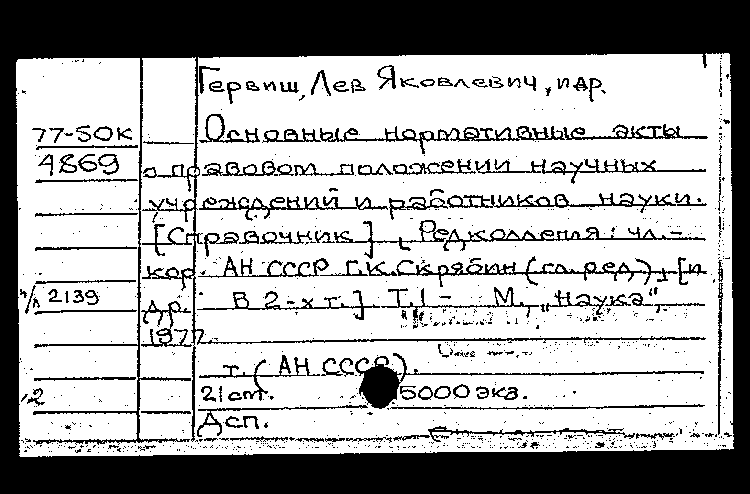 Гервиш, Лев Яковлевич, и др.
77-50К Основные нормативные акты
4869 о правовом положении научных
учреждений и работников науки.
[Справочник]. Редколлегия: чл.-
кор. АН СССР Г.К.Скрябин (гл. ред.), [и
ч/л 2139 др. В 2-х т.] Т.1 - М., "Наука",
1977.
т. (АН СССР).
21 cm. 5000 экз.
Дсп.